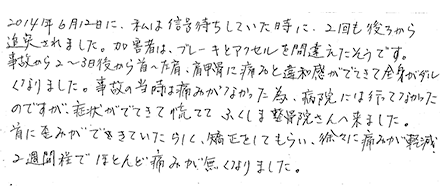 2014年6月12日に、私は信号待ちしていた時に、2回も後ろから
追突されました。加害者は、ブレーキとアクセルを間違えたそうです。
事故から2〜3日後から首〜左肩、肩甲骨に痛みと違和感がでてきて全身がダル
くなりました。事故の当時は痛みがなかった為、病院には行ってなかった
のですが、症状がでてきて慌てて ふくしま整骨院さんへ来ました。
首に歪みができていたらしく、矯正をしてもらい、徐々に痛みが軽減
2週間程でほとんど痛みが無くなりました。